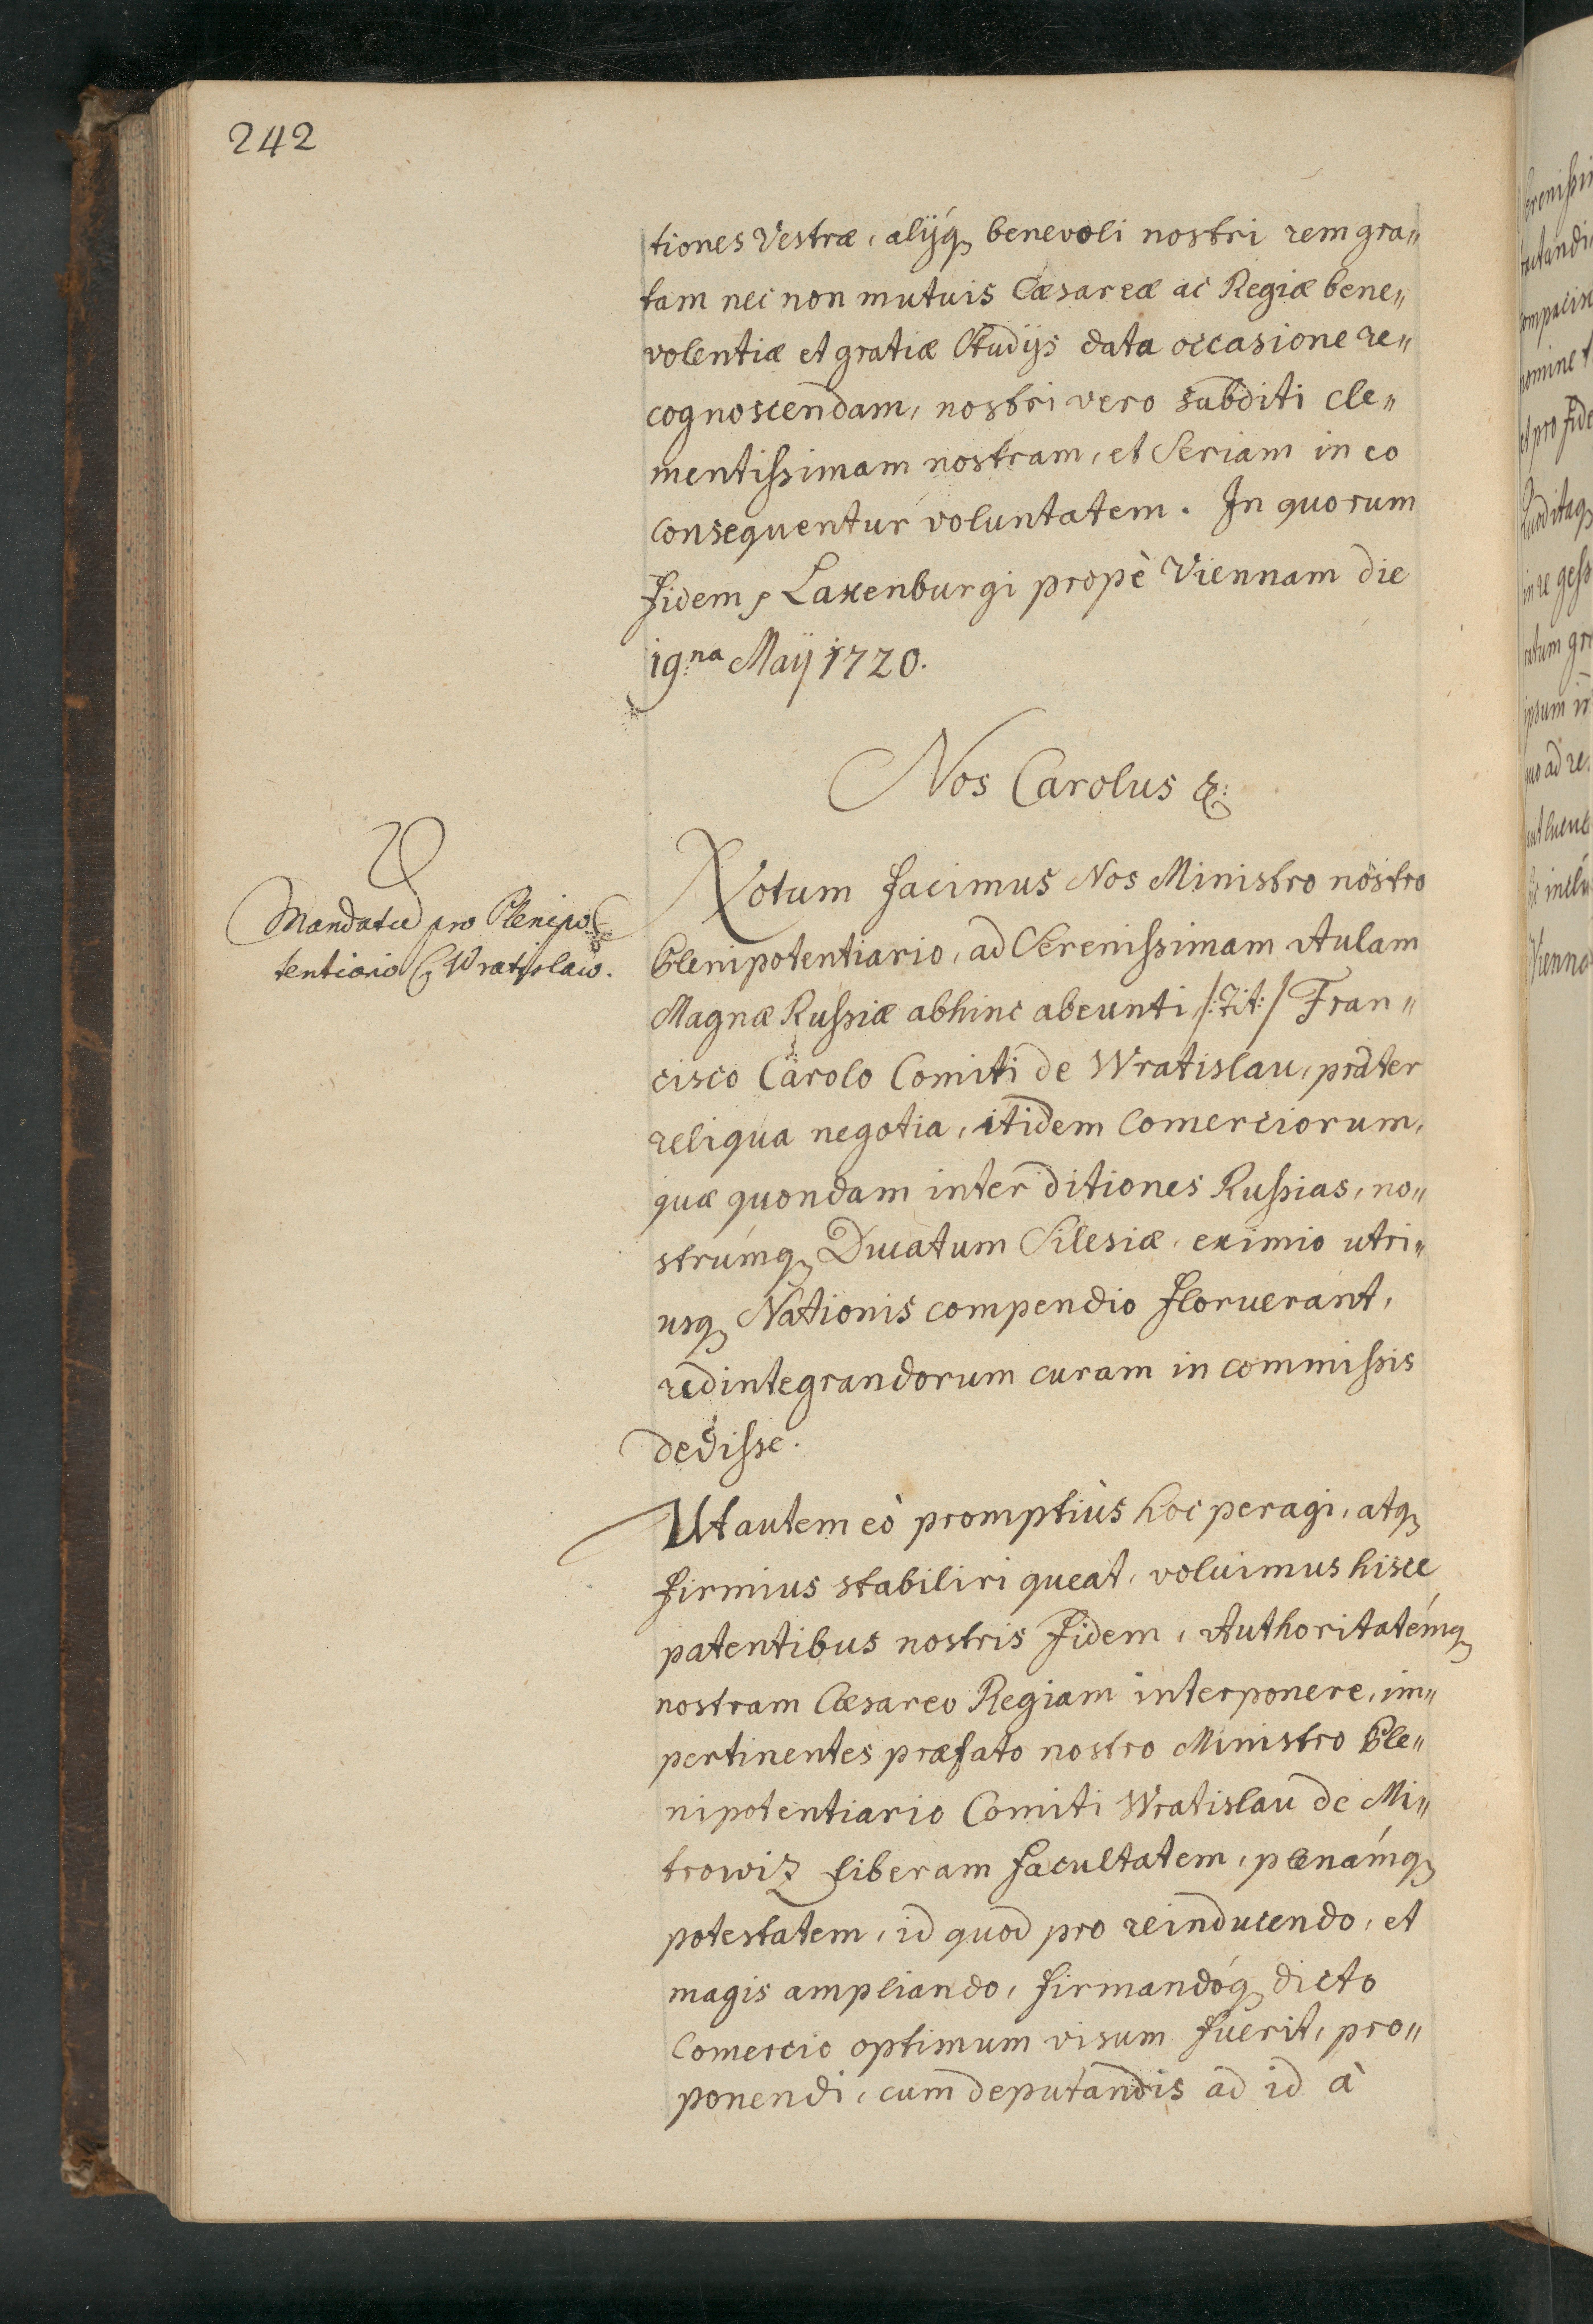 242
tiones Vestræ, alijq́ benevoli nostri rem gra„
tam nec non mutuis Cæsareæ ac Regiæ bene„
volentiæ et gratiæ Studijs data occasione re„
cognoscendam, nostri vero subditi cle„
mentißimam nostram, et Seriam in eo
consequentur voluntatem. In quorum
fidem Laxenburgi propè Viennam die
19.na Maÿ 1720.
Nos Carolus &:
Mandatu pro Plenipo
tentiario C. Wratislaw.
Notum facimus Nos Ministro nostro
Plenipotentiario, ad Serenißimam Aulam
Magnæ Rußiæ abhinc abeunti /:Tit:/ Fran„
cisco Carolo Comiti de Wratislau, præter
reliqua negotia, itidem Comerciorum,
quæ quondam inter ditiones Rußias, no„
strúmq Ducatum Silesiæ, eximio utri„
usq Nationis compendio floruerant,
redintegrandorum curam in commißis
dediße.
Ut autem eò promptiùs hoc peragi, atq
firmius stabiliri queat, voluimus hisce
patentibus nostris Fidem, Authoritatémq
nostram Cæsareo Regiam interponere, im„
pertinentes præfato nostro Ministro Ple„
nipotentiario Comiti Wratislau de Mi„
trowiz liberam facultatem, plenámq
potestatem, id quod pro reinducendo, et
magis ampliando, firmandóq dicto
Comercio optimum visum fuerit, pro„
ponendi, cum deputandis ad id à